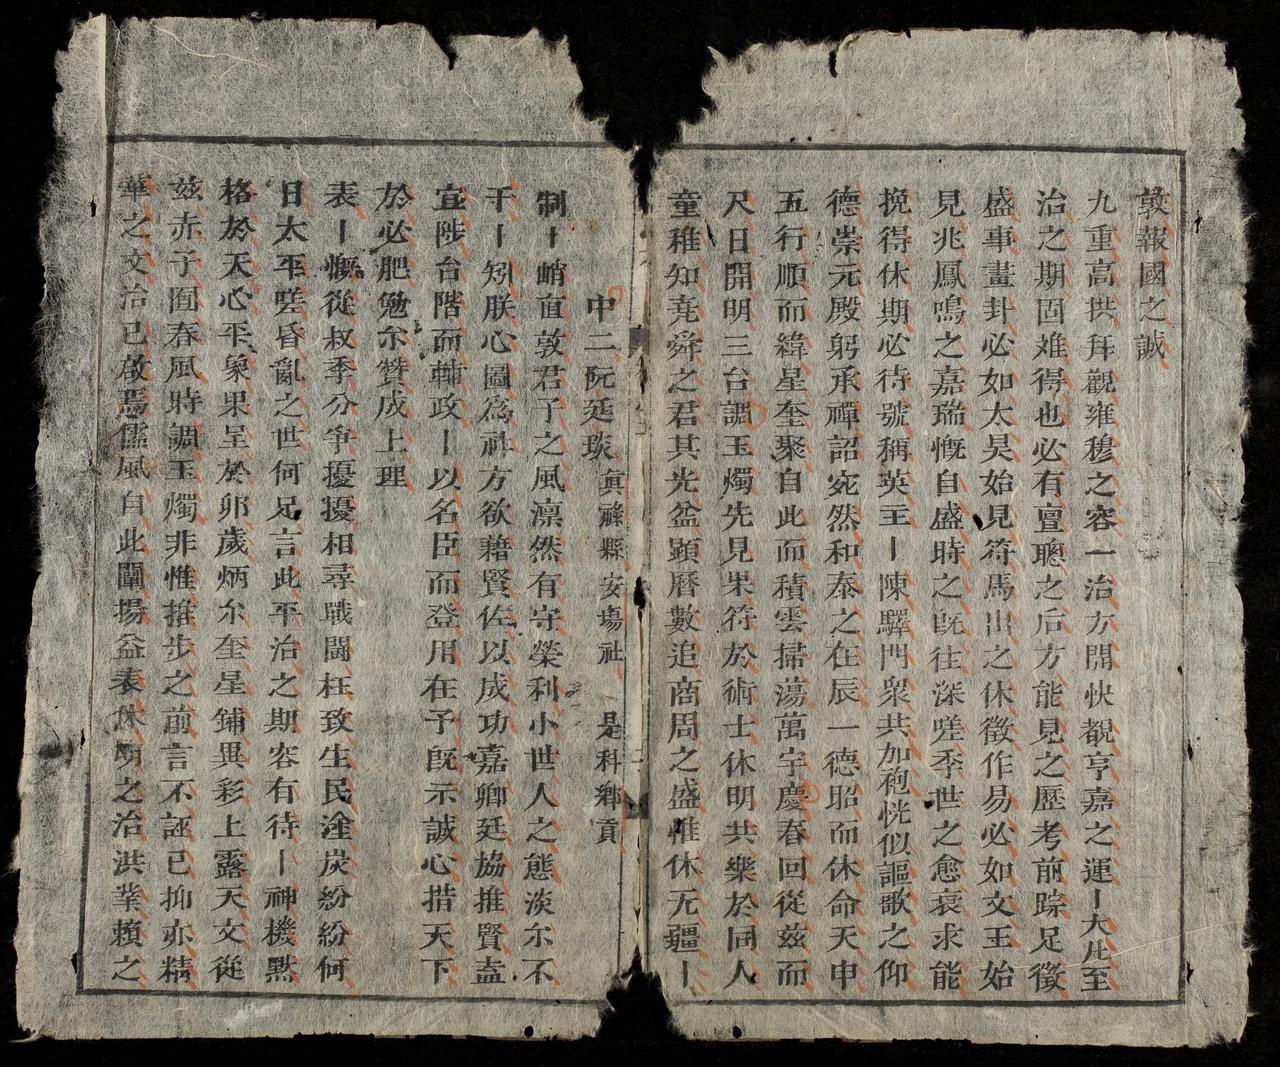 敦報國之誠
九重高拱拜觀雍穆之容一治方開快覩亨嘉之運丨大凡至
治之期固难得也必有亶聰之后方能見之歷考前踪足徵
盛事畫卦必如太昊始見符馬出之休徵作易必如文王始
見兆鳳鳴之嘉瑞慨自盛時之既往深嗟季世之愈衰求能
挽得休期必待號稱英主丨陳驛門衆共加袍恍似謳歌之仰
德崇元殿躬承禪詔宛然和泰之在辰一德昭而休命天申
五行順而緯星奎聚自此而積雲掃蕩萬宇慶春回從兹而
尺日開明三台調玉燭先見果符於術士休明共樂於同人
童稚知尭舜之君其光益顕曆數追商周之盛惟休无疆丨
中二阮廷琰 真祿縣安塲社 是科鄉貢
制丨峭直敦君子之風凛然有守榮利小世人之態淡尔不
干丨矧朕心圖爲社方欲藉賢佐以成功嘉卿廷協推賢盍
宜陟台階而輔政丨以名臣而登用在予既示誠心措天下
於必肥勉尔赞成上理
表丨慨從叔季分争擾擾相尋戰鬪枉致生民塗炭紛紛何
日太平嗟昏亂之世何足言此平治之期容有待丨神機黙
格於天心平象果呈於卯歲炳尔奎星鋪異彩上露天文從
兹赤子囿春風時調玉燭非惟推步之前言不誣已抑亦精
華之文治已啟焉儒風自此闡揚益表休明之治洪業賴之